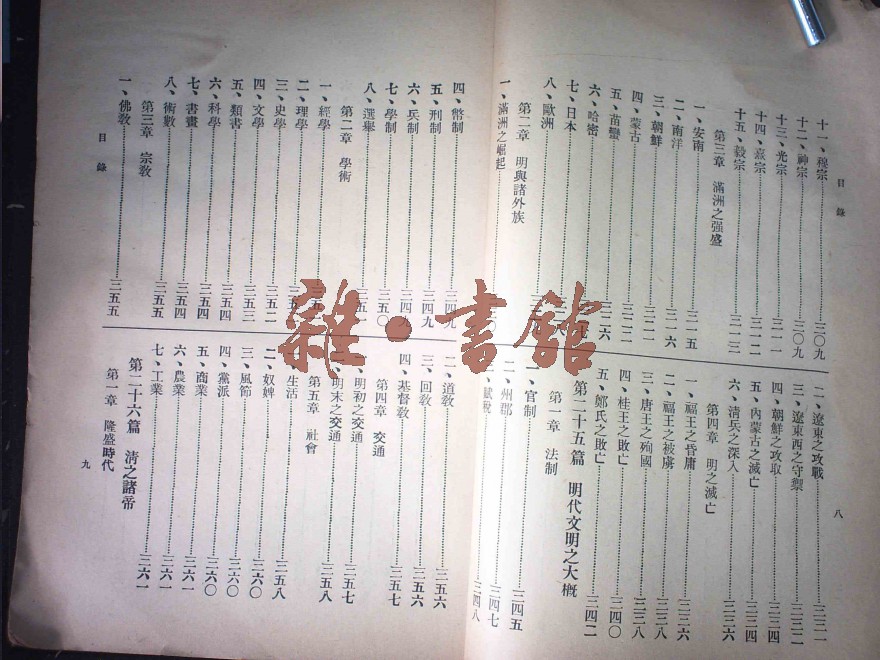 目錄
十一、穆宗……三〇九
十二、神宗……三〇九
十三、光宗……三一二
十四、熹宗……三一二
十五、毅宗……三一三
第三章 滿洲之强盛
一、安南……三一五
二、南洋……三一六
三、朝鮮……三二一
四、蒙古……三二二
五、苗蠻……三二六
六、哈密
七、日本
八、歐洲
第二章 明與諸外族
一、滿洲之崛起
二、遼東之攻戰……三三一
三、遼東西之守禦……三三二
四、朝鮮之攻取……三三四
五、內蒙古之滅亡……三三四
六、清兵之深入……三三六
第四章 明之滅亡
一、福王之昏庸……三三六
二、福王之被虜……三三八
三、唐王之殉國……三三八
四、桂王之敗亡……三四〇
五、鄭氏之敗亡……三四二
第二十五篇 明代文明之大概
第一章 法制
一、官制……三四五
二、州郡……三四七
賦稅……三四八
八
四、幣制……三四九
五、刑制……三四九
六、兵制……三四九
七、學制……三五〇
八、選舉
第二章 學術
一、經學
二、理學
三、史學……三五二
四、文學……三五二
五、類書……三五三
六、科學……三五四
七、書畫……三五四
八、術數……三五五
第三章 宗教
一、佛教……三五五
目錄
二、道教……三五六
三、回教……三五六
四、基督教……三五七
第四章 交通
明初之交通……三五七
明末之交通……三五八
第五章 社會
生活……三五八
二、奴婢……三六〇
三、風節……三六〇
四、黨派……三六〇
五、商業……三六一
六、農業……三六一
七、工業……三六一
第二十六篇 清之諸帝
第一章 隆盛時代
九
雜·書館